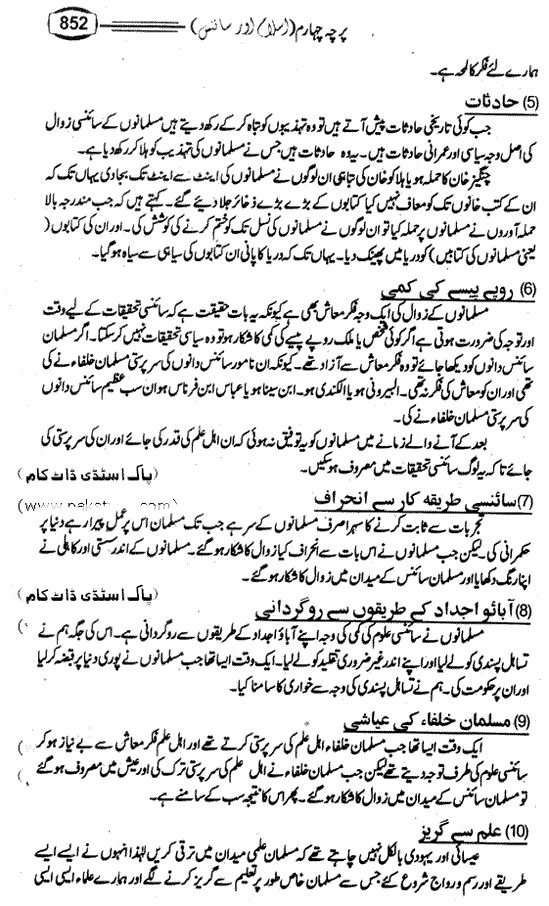 852
پرچہ چہارم (اسلام اور سائنس)
ہمارے لئے فکر کا لمحہ ہے۔
(5) حادثات
جب کوئی تاریخی حادثات پیش آتے ہیں تو وہ تہذیبوں کو تباہ کر کے رکھ دیتے ہیں مسلمانوں کے سائنسی زوال
کی اصل وجہ سیاسی اور عمرانی حادثات ہیں۔ یہ وہ حادثات ہیں جس نے مسلمانوں کی تہذیب کو ہلا کر رکھ دیا ہے۔
چنگیز خان کا حملہ ہو یا ہلاکو خان کی تباہی ان لوگوں نے مسلمانوں کی اینٹ سے اینٹ تک بجا دی یہاں تک کہ
ان کے کتب خانوں تک کو معاف نہیں کیا کتابوں کے بڑے بڑے ذخائر جلا دیئے گئے۔ کہتے ہیں کہ جب مندرجہ بالا
حملہ آوروں نے مسلمانوں پر حملہ کیا تو ان لوگوں نے مسلمانوں کی نسل تک کو ختم کرنے کی کوشش کی۔ اور ان کی کتابوں (
یعنی مسلمانوں کی کتابیں) کو دریا میں پھینک دیا۔ یہاں تک کہ دریا کا پانی ان کتابوں کی سیاہی سے سیاہ ہو گیا۔
(6) روپے پیسے کی کمی
مسلمانوں کے زوال کی ایک وجہ فکر معاش بھی ہے کیونکہ یہ بات حقیقت ہے کہ سائنسی تحقیقات کے لیے وقت
اور توجہ کی ضرورت ہوتی ہے اگر کوئی شخص یا ملک روپے پیسے کی کمی کا شکار ہو تو وہ سیاسی تحقیقات نہیں کر سکتا۔ اگر مسلمان
سائنس دانوں کو دیکھا جائے تو وہ فکر معاش سے آزاد تھے۔ کیونکہ ان نامور سائنس دانوں کی سرپرستی مسلمان خلفاء نے کی
تھی اور ان کو معاش کی فکر نہ تھی۔ البیرونی ہو یا الکندی ہو۔ ابن سینا ہو یا عباس ابن فرناس ہو ان سب عظیم سائنس دانوں
کی سرپرستی مسلمان خلفاء نے کی۔
بعد کے آنے والے زمانے میں مسلمانوں کو یہ توفیق نہ ہوئی کہ ان اہل علم کی قدر کی جائے اور ان کی سرپرستی کی
جائے تا کہ یہ لوگ سائنسی تحقیقات میں مصروف ہو سکیں۔ (پاک اسٹڈی ڈاٹ کام)
(7) سائنسی طریقہ کار سے انحراف
تجربات سے ثابت کرنے کا سہرا صرف مسلمانوں کے سر ہے جب تک مسلمان اس پر عمل پیرا رہے دنیا پر
حکمرانی کی۔ لیکن جب مسلمانوں نے اس بات سے انحراف کیا زوال کا شکار ہو گئے۔ مسلمانوں کے اندر سستی اور کاہلی نے
اپنا رنگ دکھایا اور مسلمان سائنس کے میدان میں زوال کا شکار ہو گئے۔
(پاک اسٹڈی ڈاٹ کام)
(8) آبائو اجداد کے طریقوں سے روگردانی
مسلمانوں نے سائنسی علوم کی کمی کی وجہ اپنے آباؤ اجداد کے طریقوں سے روگردانی ہے۔ اس کی جگہ ہم نے
تساہل پسندی کو لے لیا اور اپنے اندر غیر ضروری تقلید کو لے لیا۔ ایک وقت ایسا تھا جب مسلمانوں نے پوری دنیا پر قبضہ کر لیا
اور ان پر حکومت کی۔ ہم نے تساہل پسندی کی وجہ سے خواری کا سامنا کیا۔
(9) مسلمان خلفاء کی عیاشی
ایک وقت ایسا تھا جب مسلمان خلفاء اہل علم کی سرپرستی کرتے تھے اور اہل علم فکر معاش سے بے نیاز ہو کر
سائنسی علوم کی طرف توجہ دیتے تھے لیکن جب مسلمان خلفاء نے اہل علم کی سرپرستی ترک کی اور عیش میں مصروف ہو گئے
تو مسلمان سائنس کے میدان میں زوال کا شکار ہو گئے۔ پھر اس کا نتیجہ سب کے سامنے ہے۔
(10) علم سے گریز
عیسائی اور یہودی بالکل نہیں چاہتے تھے کہ مسلمان علمی میدان میں ترقی کریں لہٰذا انہوں نے ایسے ایسے
طریقے اور رسم و رواج شروع کئے جس سے مسلمان خاص طور پر تعلیم سے گریز کرنے لگے اور ہمارے علماء ایسی ایسی